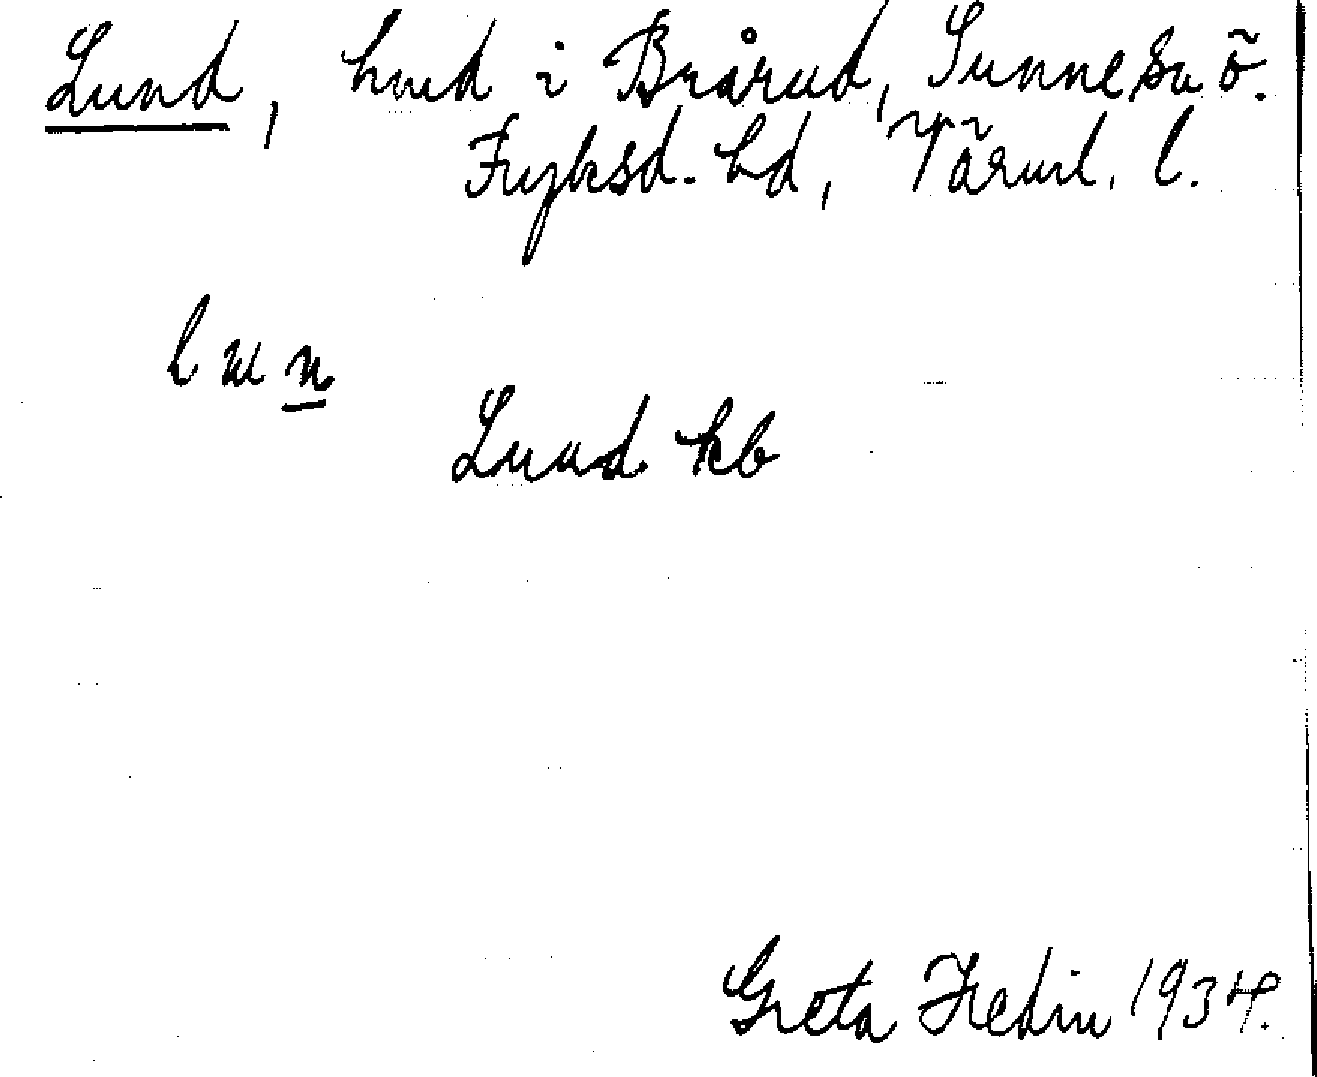 Lund, hmd i Brårud, Sunne sn ö.
Fryksd. hd, Värml. l.
l u n
Lund kb
Greta Hedin 1934.